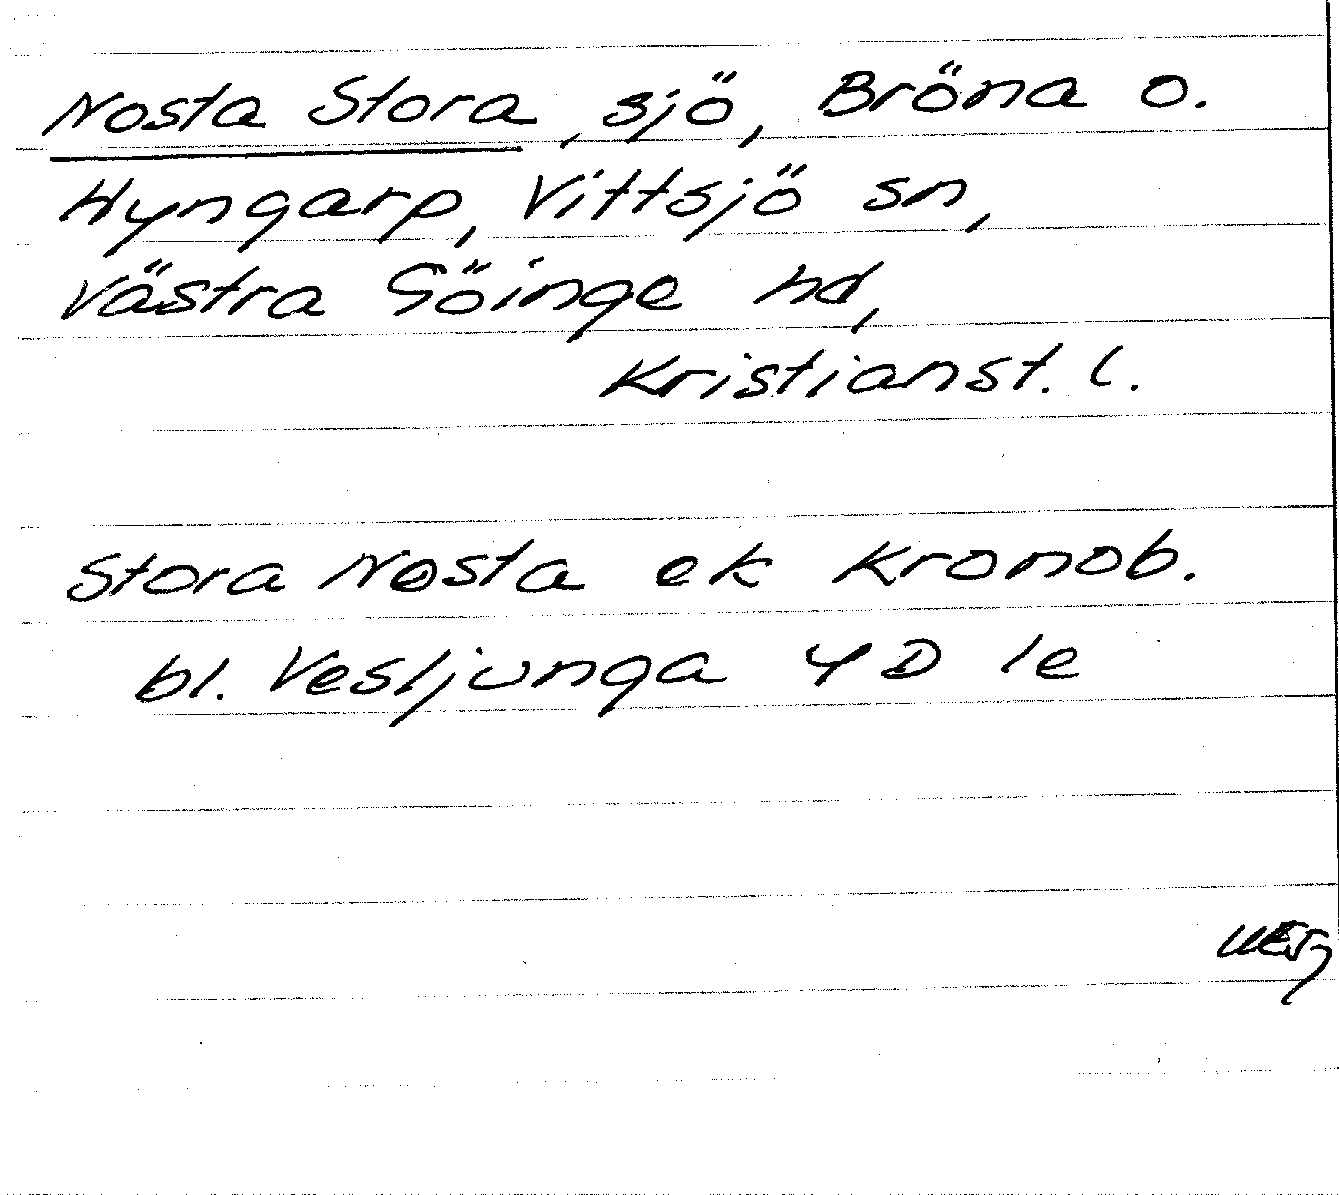 Nosta Stora, sjö, Bröna o.
Hyngarp, Vittsjö sn,
Västra Göinge hd,
Kristianst. l.
Stora Nosta ek Kronob.
bl. Vesljunga 4 D 1e